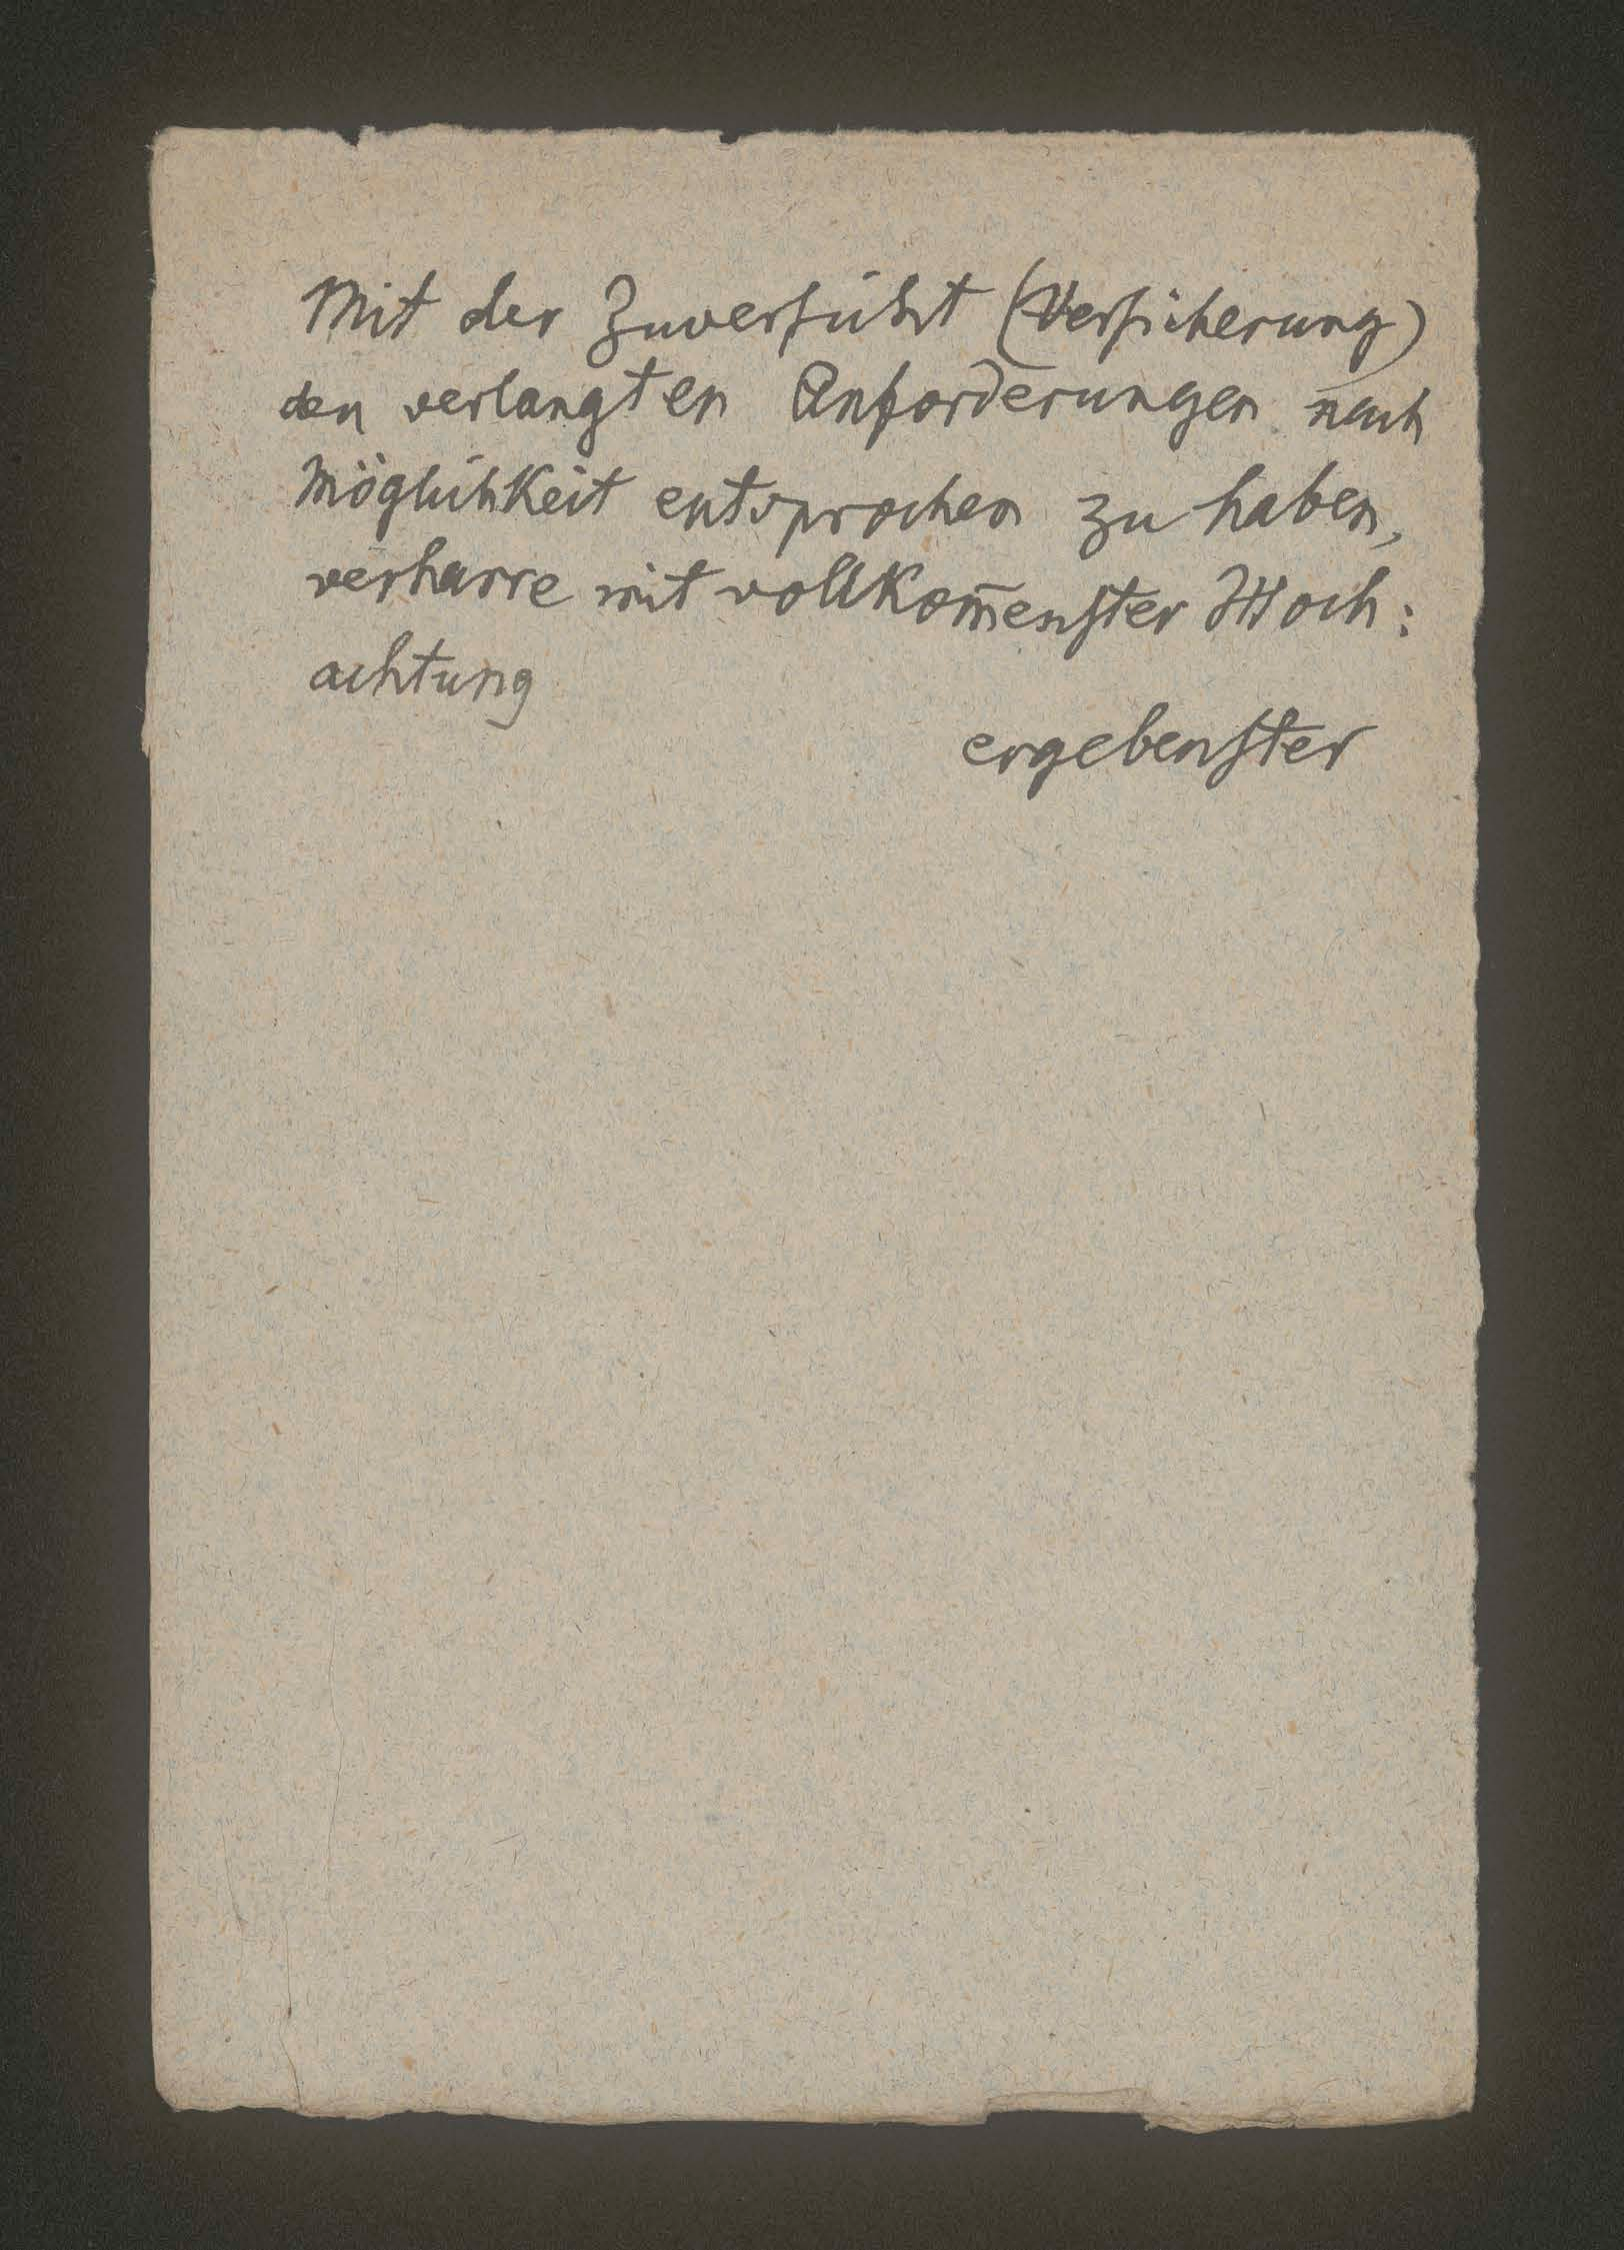 Mit der Zuversicht (Versicherung)
den verlangten Anforderungen nach
Möglichkeit entsprochen zu haben,
verharre mit vollkom̄enster Hoch:
achtung
ergebenster